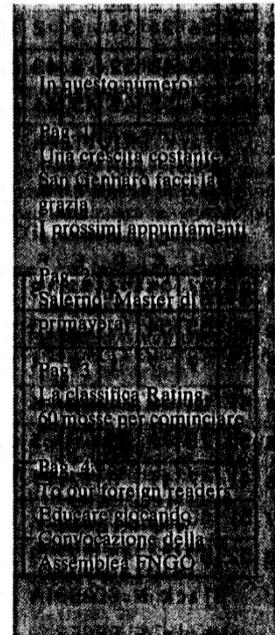 In questo numero:
Pag. 1
Una crescita costante
San Gennaro facci la
grazia
I prossimi appuntamenti
Pag. 2
Salerno: Master di
primavera
Pag. 3
La classifica Rating
60 mosse per cominciare
Pag. 4
To our foreign readers
Educare giocando
Convocazione della
Assemblea FNGO